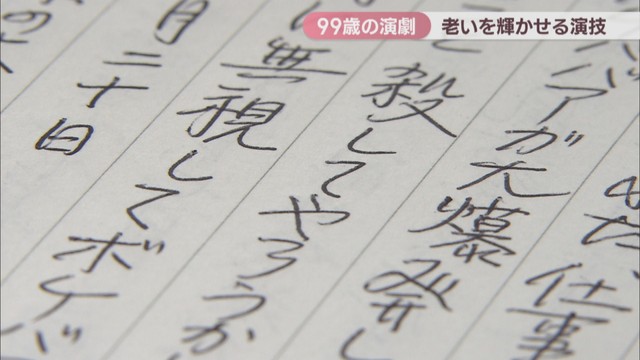 99歳の演劇
老いを輝かせる演技
仕事
バアが大爆発し
殺してやろうか
無視してボケバ
月三十日